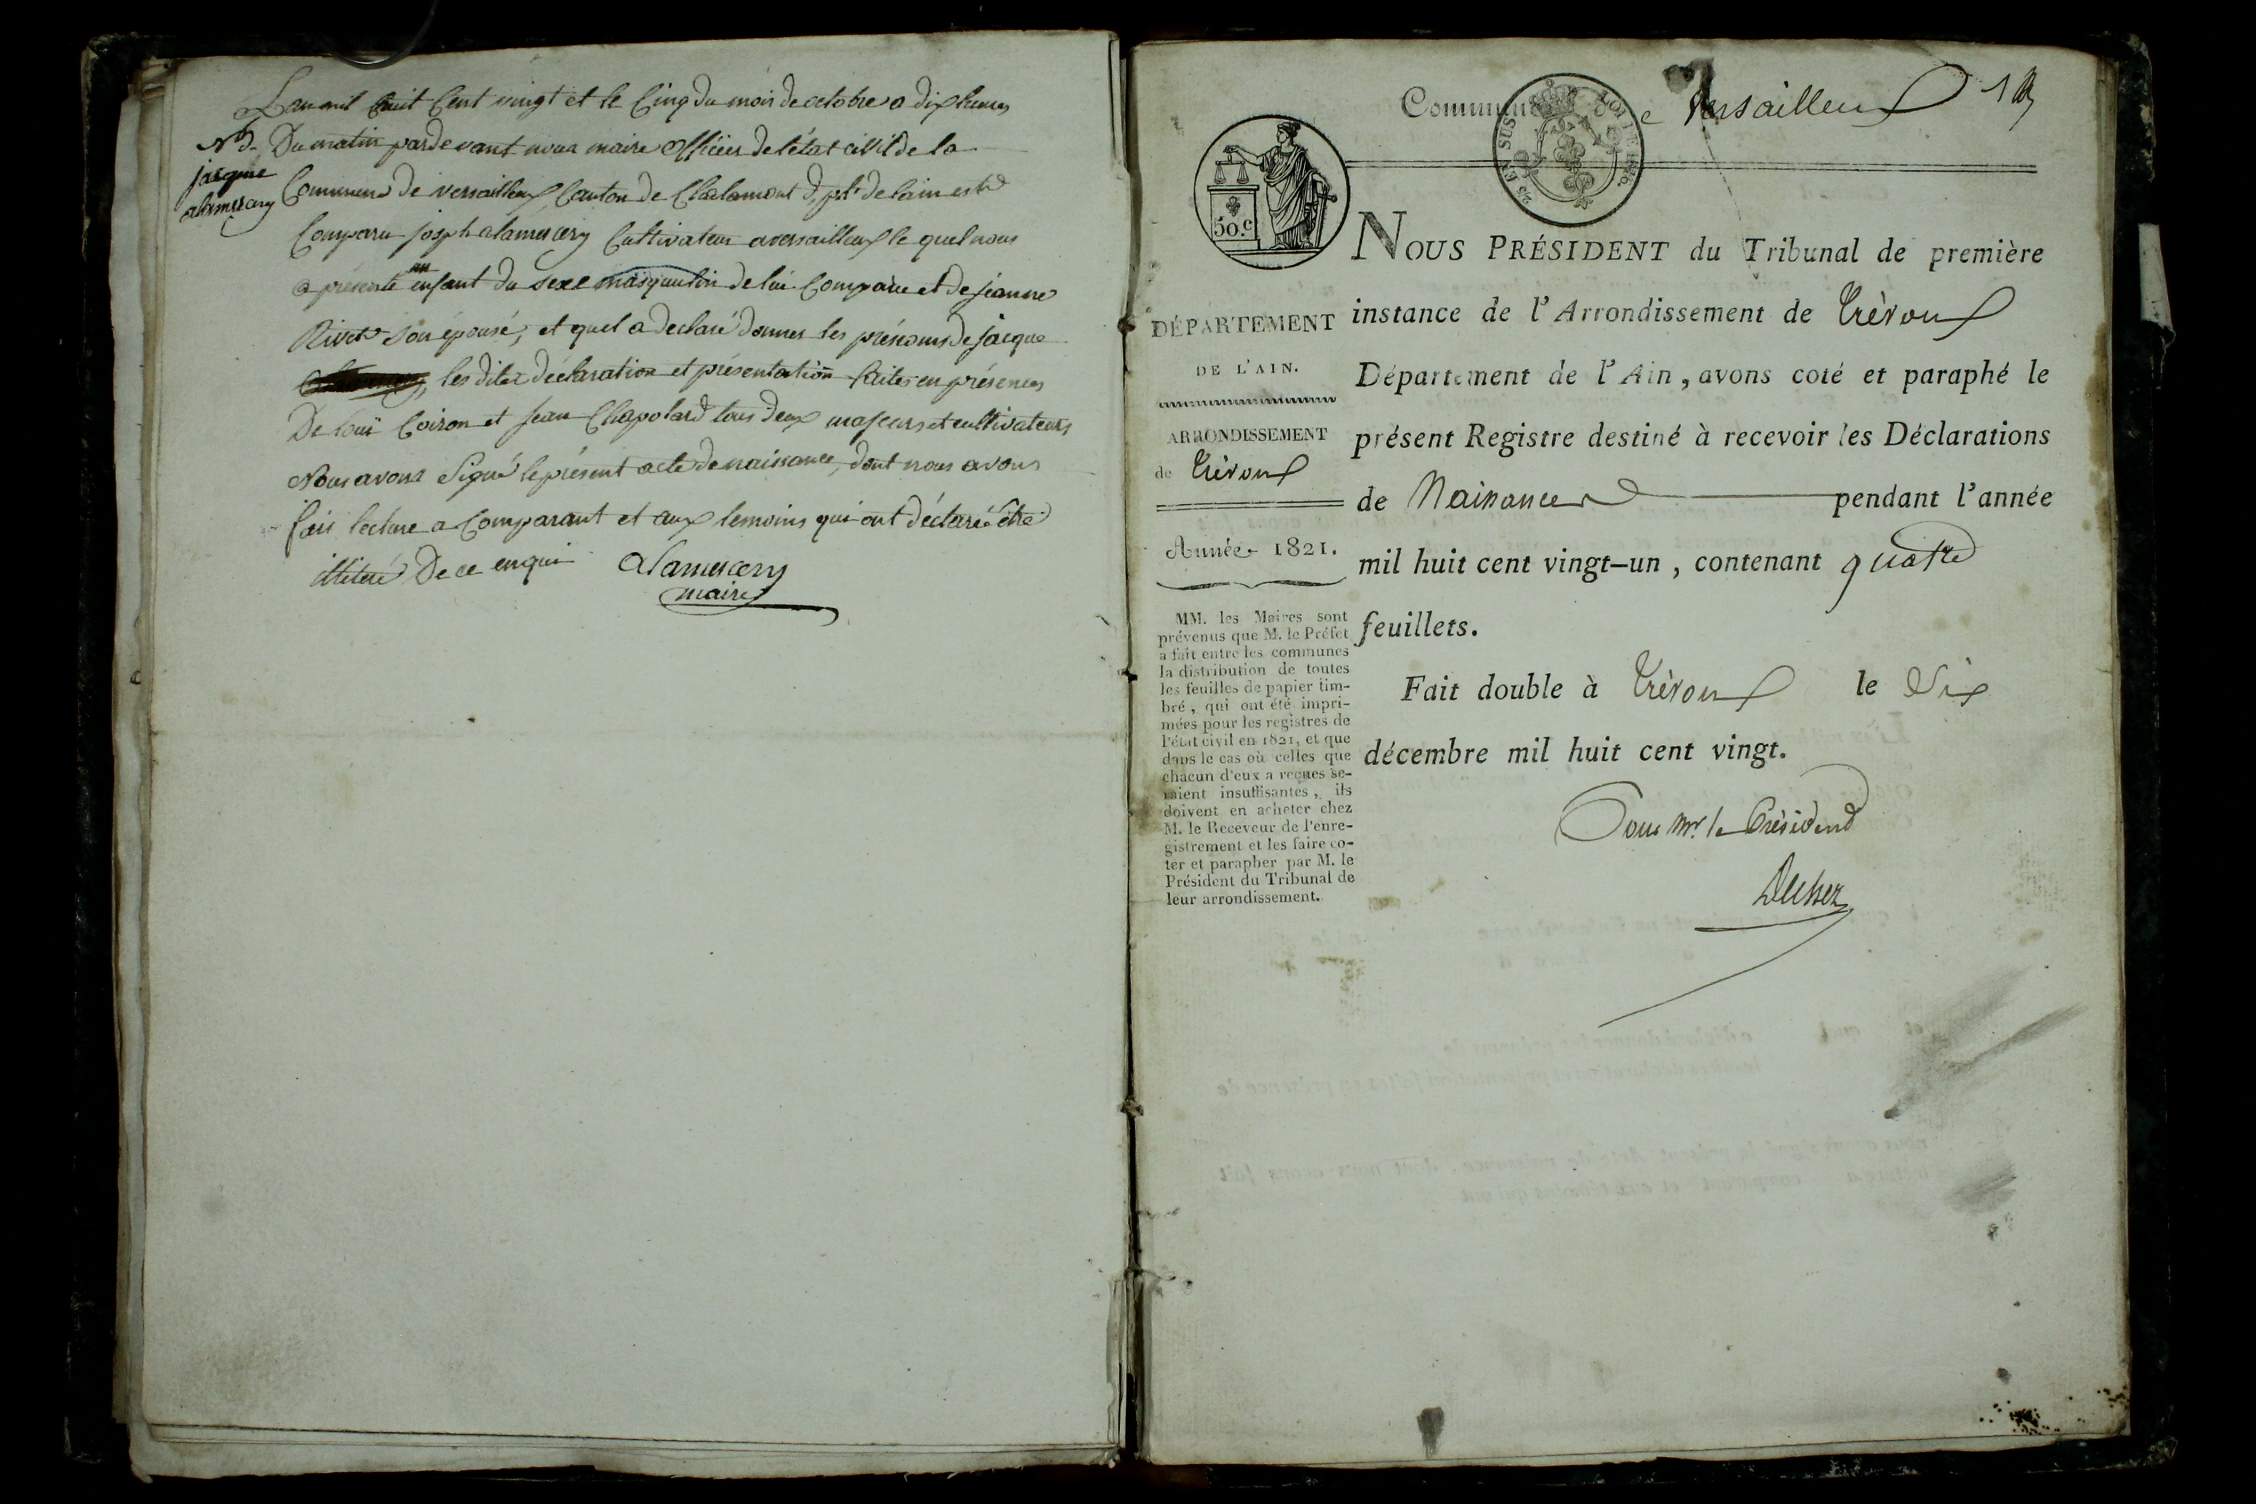 Lan mil huit Cent vingt et le Cinq du mois de octobre a dix heures
Du matin par devant nous maire officier de l'état civil de la
jacque
alamercery
Commune de versailleux Canton de Chalamont dpt de lain est
Comparu joseph alamercery Cultivateur a versailleux le quel nous
a présenté un enfant du sexe masqueulin de lui Comparu et de jeanne
Rivet son épousé, et quel a declaré donner les prénoms de jacque
les dites déclaration et présentation faites en présences
De loui Coiron et jean Chapolard tous deux majeurs et cultivateurs
Nous avons Signé le présent acte de naissance, dont nous avons
fait lecture a Comparant et aux temoins qui ont déclaré être
illiteré De ce enquis
alamercery
maire
Commune de Versailleux 1
LOI DE 1816.
25 EN SUS
50.c
DÉPARTEMENT
DE L'AIN.
ARRONDISSEMENT
de Trévoux
Année 1821.
MM. les Maires sont
prévenus que M. le Préfet
a fait entre les communes
la distribution de toutes
les feuilles de papier tim-
bré, qui ont été impri-
mées pour les registres de
l'état civil en 1821, et que
dans le cas où celles que
chacun d'eux a reçues se-
raient insuffisantes, ils
doivent en acheter chez
M. le Receveur de l'enre-
gistrement et les faire co-
ter et parapher par M. le
Président du Tribunal de
leur arrondissement.
NOUS PRÉSIDENT du Tribunal de première
instance de l'Arrondissement de Trévoux
Département de l'Ain, avons coté et paraphé le
présent Registre destiné à recevoir les Déclarations
de Naissances pendant l'année
mil huit cent vingt-un, contenant quatre
feuillets.
Fait double à Trévoux le Six
décembre mil huit cent vingt.
Pour Mr. le Président